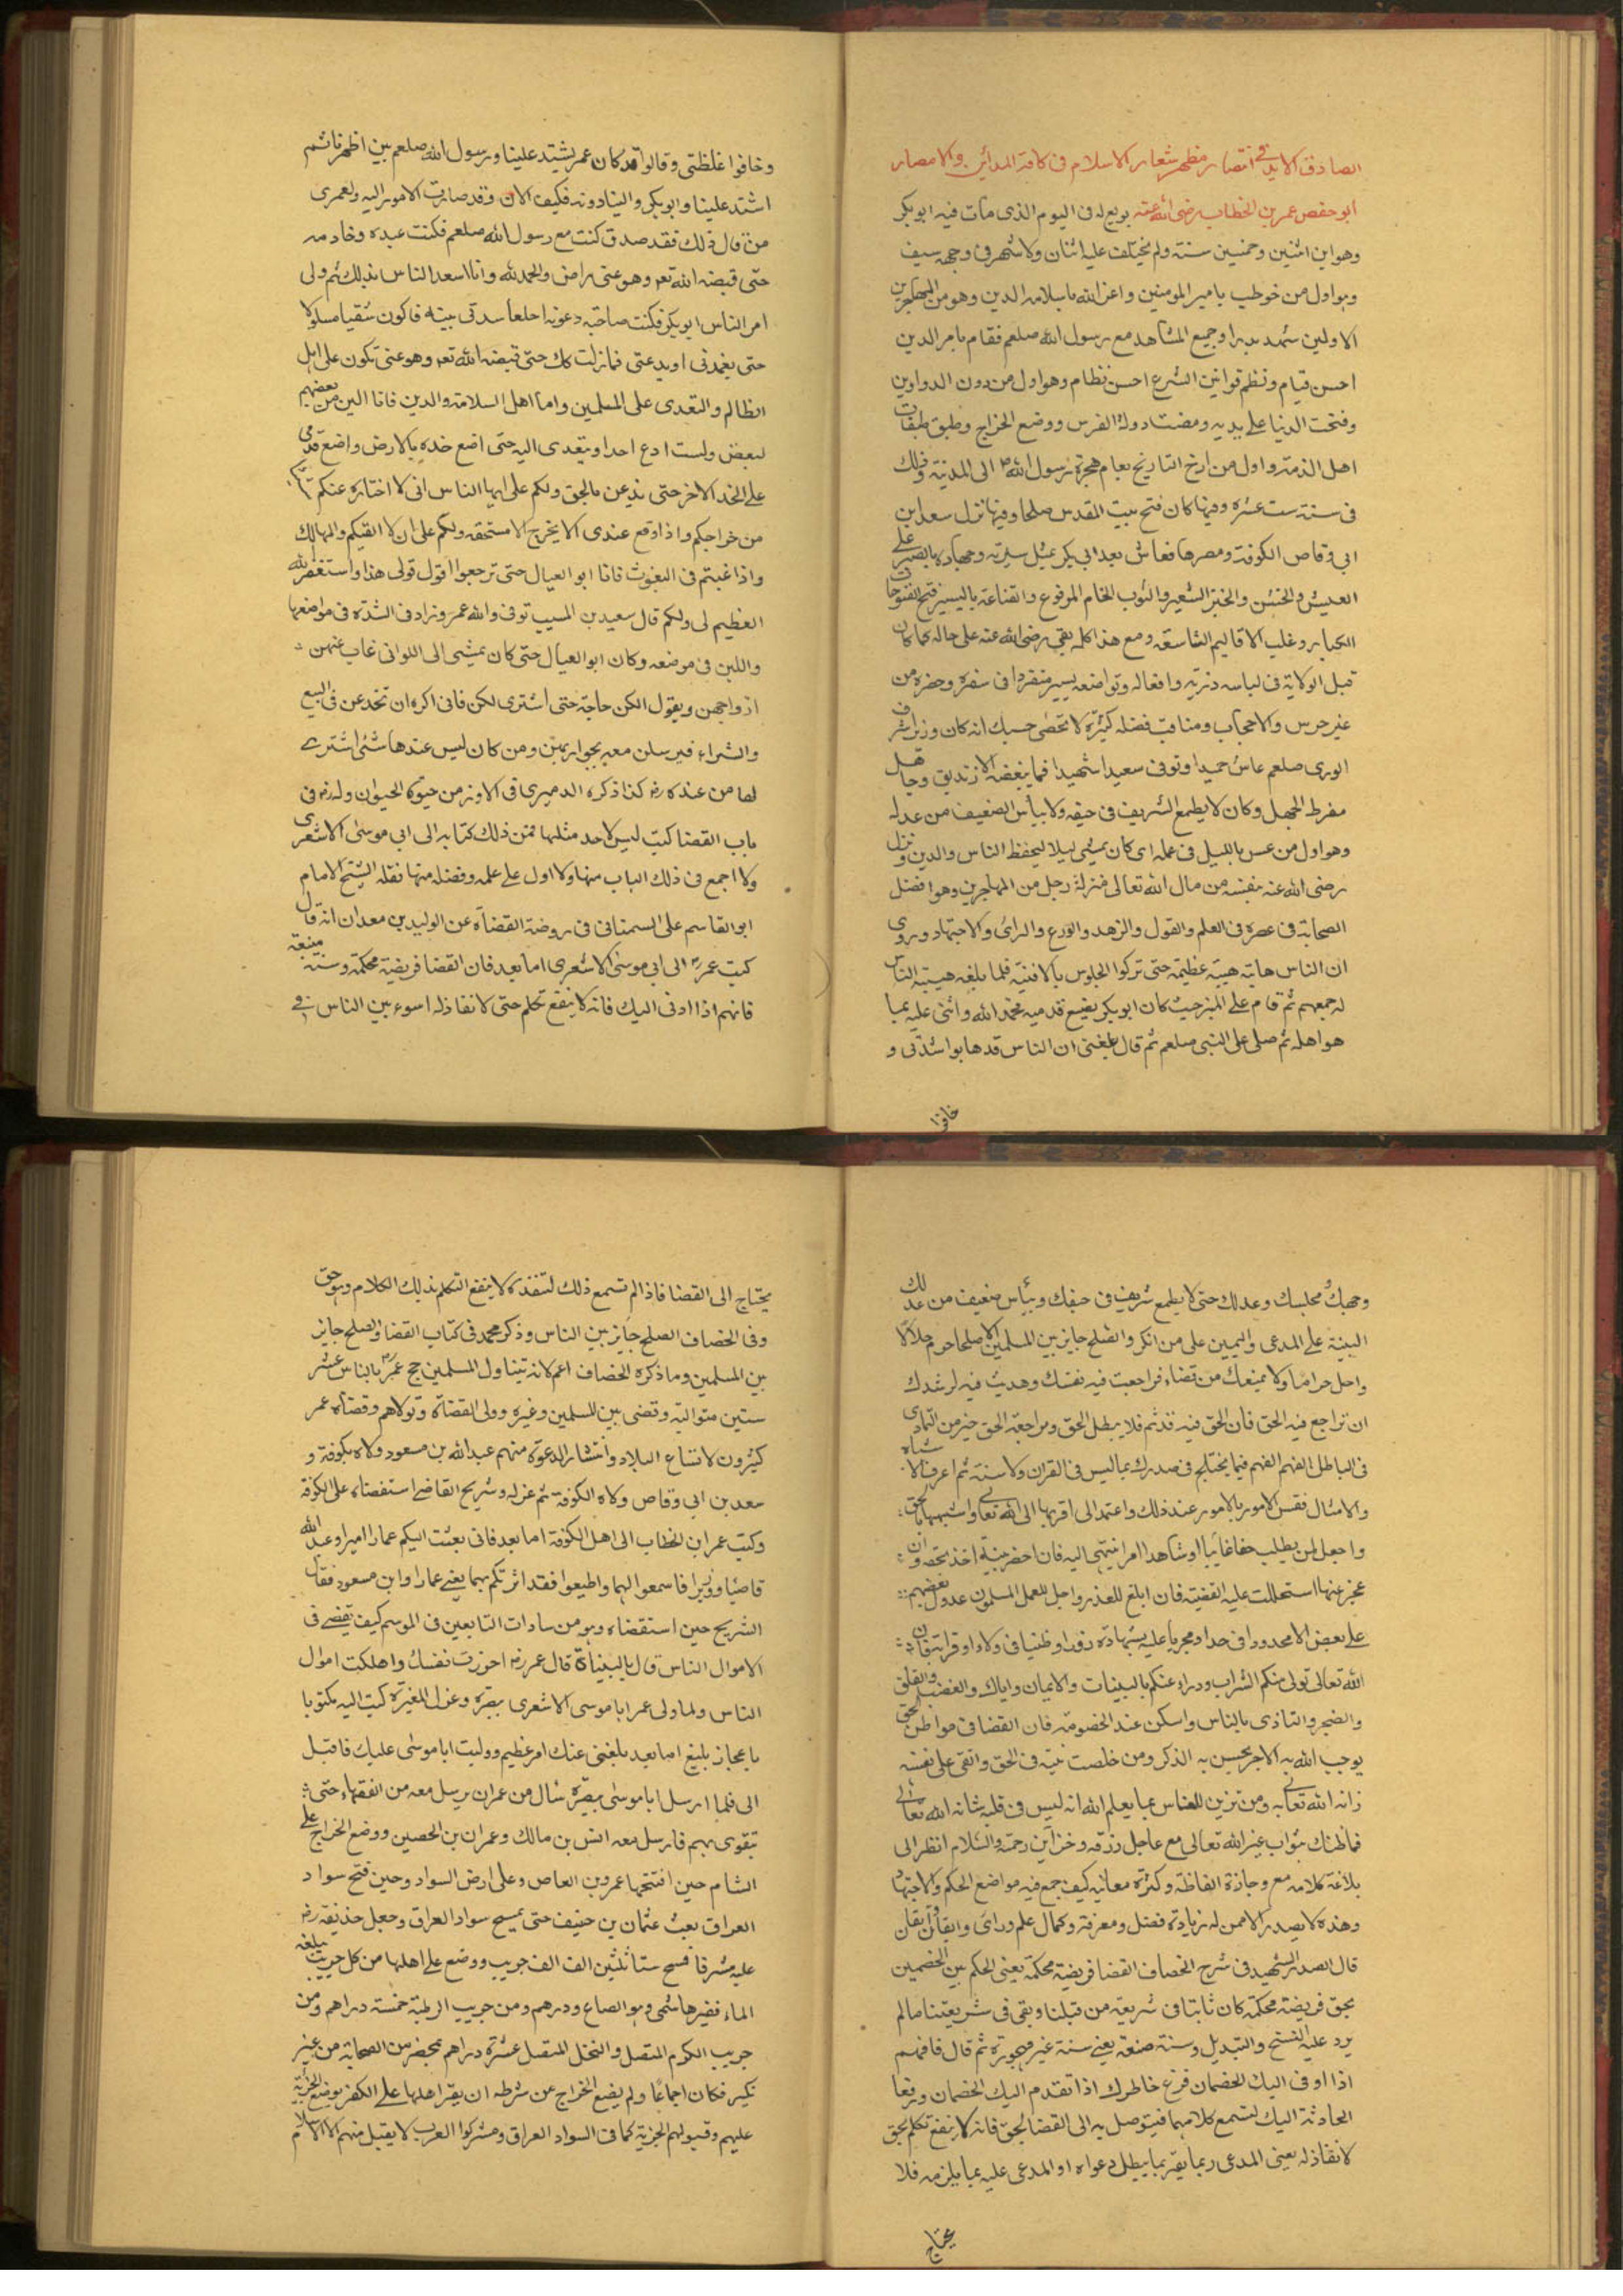 الصادق الابد في انتصار مظهر شعار الاسلام فى كافة المدائن والامصار
ابو حفص عمر بن الخطاب رضى الله عنه بويع له فى اليوم الذى مات فيه ابو بكر
وهو ابن اثنين وخمسين سنة ولم يختلف عليه اثنان ولا شهر فى وجهه سيف
وهو اول من خوطب بامير المومنين واعز الله باسلامه الدين وهو من المهاجرين
الاولين شهد بدرا وجميع المشاهد مع رسول الله صلعم فقام بامر الدين
احسن قيام ونظم قوانين الشرع احسن نظام وهو اول من دون الدواوين
وفتحت الدنيا على يديه ومضت دولة الفرس ووضع الخراج وطبق طبقات
اهل الذمة واول من ارخ التاريخ بعام هجرة رسول الله الى المدينة وذلك
فى سنة ست عشره وفيها كان فتح بيت المقدس صلحا وفيها نزل سعد ابن
ابى وقاص الكوفة ومصرها فعاش بعد ابى بكر بمثل سيرته وجهاده بالصبر على
العيش والخشن والخبز الشعير والثوب الخام المرقوع والقناعة باليسير فتح الفتوحات
الكبار وغلب الاقاليم الشاسعة ومع هذا كله بقى رضى الله عنه على حاله كما كان
قبل الولاية فى لباسه وزيه وافعاله وتواضعه يسير منفردا فى سفره وحضره من
غير حرس ولا حجاب ومناقب فضله كثيرة لا تحصى حسبك انه كان وزير اشرف
الورى صلعم عاش حميدا وتوفى سعيدا شهيدا فما يبغضه الا زنديق وجاهل
مفرط الجهل وكان لا يطمع الشريف فى حيفه ولا يبأس الضعيف من عدله
وهو اول من عس بالليل فى عمله اى كان يمشى ليلا ليحفظ الناس والدين ونزل
رضى الله عنه نفسه من مال الله تعالى منزلة رجل من المهاجرين وهو افضل
الصحابة فى عصره فى العلم والقول والزهد والورع والرائ والاجتهاد وروى
ان الناس هابته هيبة عظيمة حتى تركوا الجلوس بالافنية فلما بلغه هيبته الناس
له جمعهم ثم قام على المنبر حيث كان ابو بكر يضع قدميه فحمد الله واثنى عليه بما
هو اهله ثم صلى على النبى صلعم ثم قال بلغنى ان الناس قد هابوا شدتى و
خافوا
وخافوا غلظتى وقالوا قد كان عمر يشتد علينا ورسول الله صلعم بين اظهرنا ثم
اشتد علينا وابو بكر والينا دونه فكيف الان وقد صارت الامور اليه ولعمرى
من قال ذلك فقد صدق كنت مع رسول الله صلعم فكنت عبده وخادمه
حتى قبضه الله تعه وهو عنى راض والحمد لله وانا اسعد الناس بذلك ثم ولى
امر الناس ابو بكر فكنت
حتى يغمدنى او يدعنى فما زلت كك حتى قبضه الله تعه وهو عنى تكون على اهل
الظالم والتعدى على المسلمين واما اهل السلامة والدين فانا الين من بعضهم
لبعض ولست ادع احدا ويتعدى اليه حتى اضع خده بالارض واضع قدمى
على الخد الاخر حتى يذعن بالحق ولكم على ايها الناس انى لا اختار عنكم شيئا
من خراجكم واذا وقع عندى الا يخرج الا مستحقه ولكم على ان لا القيكم والمهالك
واذا غبتم فى البعوث فانا ابو العيال حتى ترجعوا اقول قولى هذا واستغفر الله
العظيم لى ولكم قال سعيد بن المسيب توفى والله عمر وزاد فى الشدة فى مواضعها
واللين فى موضعه وكان ابو العيال حتى كان يمشى الى اللواتى غاب عنهن
ازواجهن ويقول الكن حاجة حتى اشترى لكن فانى اكره ان تخدعن فى البيع
والشراء فيرسلن معه بجواريهن ومن كان ليس عندها شئ اشترى
لها من عنده كذا ذكره الدميرى فى الاوز من حيوة الحيوان وله فى
باب القضا كتب ليس لاحد مثلها فمن ذلك كتابه الى ابى موسى الاشعرى
ولا اجمع فى ذلك الباب منها ولا اول على علمه وفضله منها نقله الشيخ الامام
ابو القاسم على السمنانى فى روضة القضاة عن الوليد بن معدان انه قال
كتب عمر الى ابى موسى الاشعرى اما بعد فان القضا فريضة محكمة وسنة متبعة
فافهم اذا ادلى اليك فانه لا ينفع تكلم حتى لا نفاذ له اسوء بين الناس فى
وجهك مجلسك وعدلك حتى لا يطمع شريف فى حيفك ويبأس ضعيف من عدلك
البينة على المدعى واليمين على من انكر والصلح جايز بين المسلمين الا صلحا حرم حلالا
واحل حراما ولا يمنعك من قضاء فراجعت فيه نفسك وهديت فيه لرشدك
ان تراجع فيه الحق فان الحق فيه قديم فلا يبطل الحق ومراجعة الحق خير من التمادى
فى الباطل الفهم الفهم فيما يختلج فى صدرك مما ليس فى القران ولا سنة ثم اعرف الاشباه
والامثال فقس الامور بالامور عند ذلك واعتمد الى اقربها الى الله تعالى واشبهها بالحق
واجعل لمن يطلب حقا غايبا او شاهدا امرا ينتهى اليه فان احضر بينة اخذ بحقه وان
عجز عنها استحللت عليه القضية فان ابلغ للعذر واجل للعمل المسلمون عدول بعضهم
على بعض الا محدودا فى حد او مجربا عليه بشهادة زور او ظنينا فى ولاء او قرابة فان
الله تعالى تولى منكم السراير ودراء عنكم بالبينات والايمان واياك والغضب والقلق
والضجر والتاذى بالناس واسكن عند الخصومة فان القضا فى مواطن الحق
يوجب الله به الاجر يحسن به الذكر ومن خلصت نيته فى الحق واتقى على نفسه
زانه الله تعالى به ومن تزين للناس بما يعلم الله انه ليس فى قلبه شانه الله تعالى
فما ظنك بثواب غير الله تعالى مع عاجل رزقه وخزاين رحمته والسلام انظر الى
بلاغة كلامه مع وجازة الفاظه وكثرة معانيه كيف جمع فيه مواضع الحكم والاجتهاد
وهذه لا يصدر الا ممن له زيادة فضل ومعرفة وكمال علم وراى وايقان
قال الصدر الشهيد فى شرح الخصاف القضا فريضة محكمة يعنى الحكم بين الخصمين
بحق فريضة محكمة كان ثابتا فى شريعة من قبلنا وبقى فى شريعتنا مالم
يرد عليه النسخ والتبديل وسنة متبعة يعنى سنة غير مهجورة ثم قال فافهم
اذا اوفى اليك الخصمان فرغ خاطرك اذا تقدم اليك الخصمان ورفعا
الحادثة اليك لتسمع كلامهما فيتوصل به الى القضا بالحق فانه لا ينفع تكلم بحق
لا نفاذ له يعنى المدعى ربما يقر بما يبطل دعواه او المدعى عليه بما يلزمه فلا
يحتاج
يحتاج الى القضا فاذا لم تسمع ذلك لتنفذه لا ينفع التكلم بذلك الكلام وهو حق
وفى الخصاف الصلح جايز بين الناس وذكر محمد فى كتاب القضا والصلح جايز
بين المسلمين وما ذكره الخصاف اعم لانه يتناول المسلمين حج عمر بالناس عشر
سنين متوالية وقضى بين المسلمين وغيره وولى القضاة وتولاهم وقضاة عمر
كثيرون لاتساع البلاد وانتشار الدعوة منهم عبد الله بن مسعود ولاه بكوفة و
سعد بن ابى وقاص ولاه الكوفة ثم عزله وشريح القاضى استقضاه على الكوفة
وكتب عمر ابن الخطاب الى اهل الكوفة اما بعد فانى بعثت اليكم عمارا اميرا وعبد الله
قاضيا ووزيرا فاسمعوا لهما واطيعوا فقد اثرتكم بهما يعنى عمارا وابن مسعود فقال
الشريح حين استقضاه وهو من سادات التابعين فى الموسم كيف تقضى فى
الاموال الناس قال بالبيناة قال عمر احرزت نفسك واهلكت اموال
الناس ولما ولى عمر ابا موسى الاشعرى ببصرة وعزل المغيرة كتب اليه مكتوبا
باعجاز بليغ اما بعد بلغنى عنك امر عظيم ووليت ابا موسى عليك فاقبل
الى فلما ارسل ابا موسى ببصرة سال من عمر ان يرسل معه من الفقهاء حتى
تقوى بهم فارسل معه انس بن مالك وعمران بن الحصين ووضع الخراج على
الشام حين افتتحها عمرو بن العاص وعلى ارض السواد وحين فتح سواد
العراق بعث عثمان بن حنيف حتى يمسح سواد العراق وجعل حذيفة
عليه مشرفا فمسح ستا ثلثين الف الف جريب ووضع على اهلها من كل جريب يبلغه
الماء قفيز هاشمى وهو الصاع ودرهم ومن جريب الرطبة خمسة دراهم ومن
جريب الكرم المتصل والنخل المتصل عشرة دراهم بمحضر من الصحابة من غير
نكير فكان اجماعا ولم يضع الخراج من شرطه ان يقر اهلها على الكفر بوضع الجزية
عليهم وقبولهم الجزية كما فى السواد العراق ومشركوا العرب لا يقبل منهم الا الاسلام